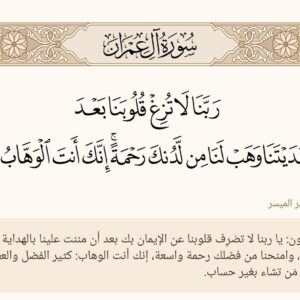 سُورَةُ آلِ عِمْرَان
رَبَّنَا لَا تُزِغْ قُلُوبَنَا بَعْدَ
هَدَيْتَنَا وَهَبْ لَنَا مِن لَّدُنكَ رَحْمَةً ۚ إِنَّكَ أَنتَ الْوَهَّابُ
الميسر
يا ربنا لا تصرف قلوبنا عن الإيمان بك بعد أن مننت علينا بالهداية
، وامنحنا من فضلك رحمة واسعة، إنك أنت الوهاب: كثير الفضل
من تشاء بغير حساب.